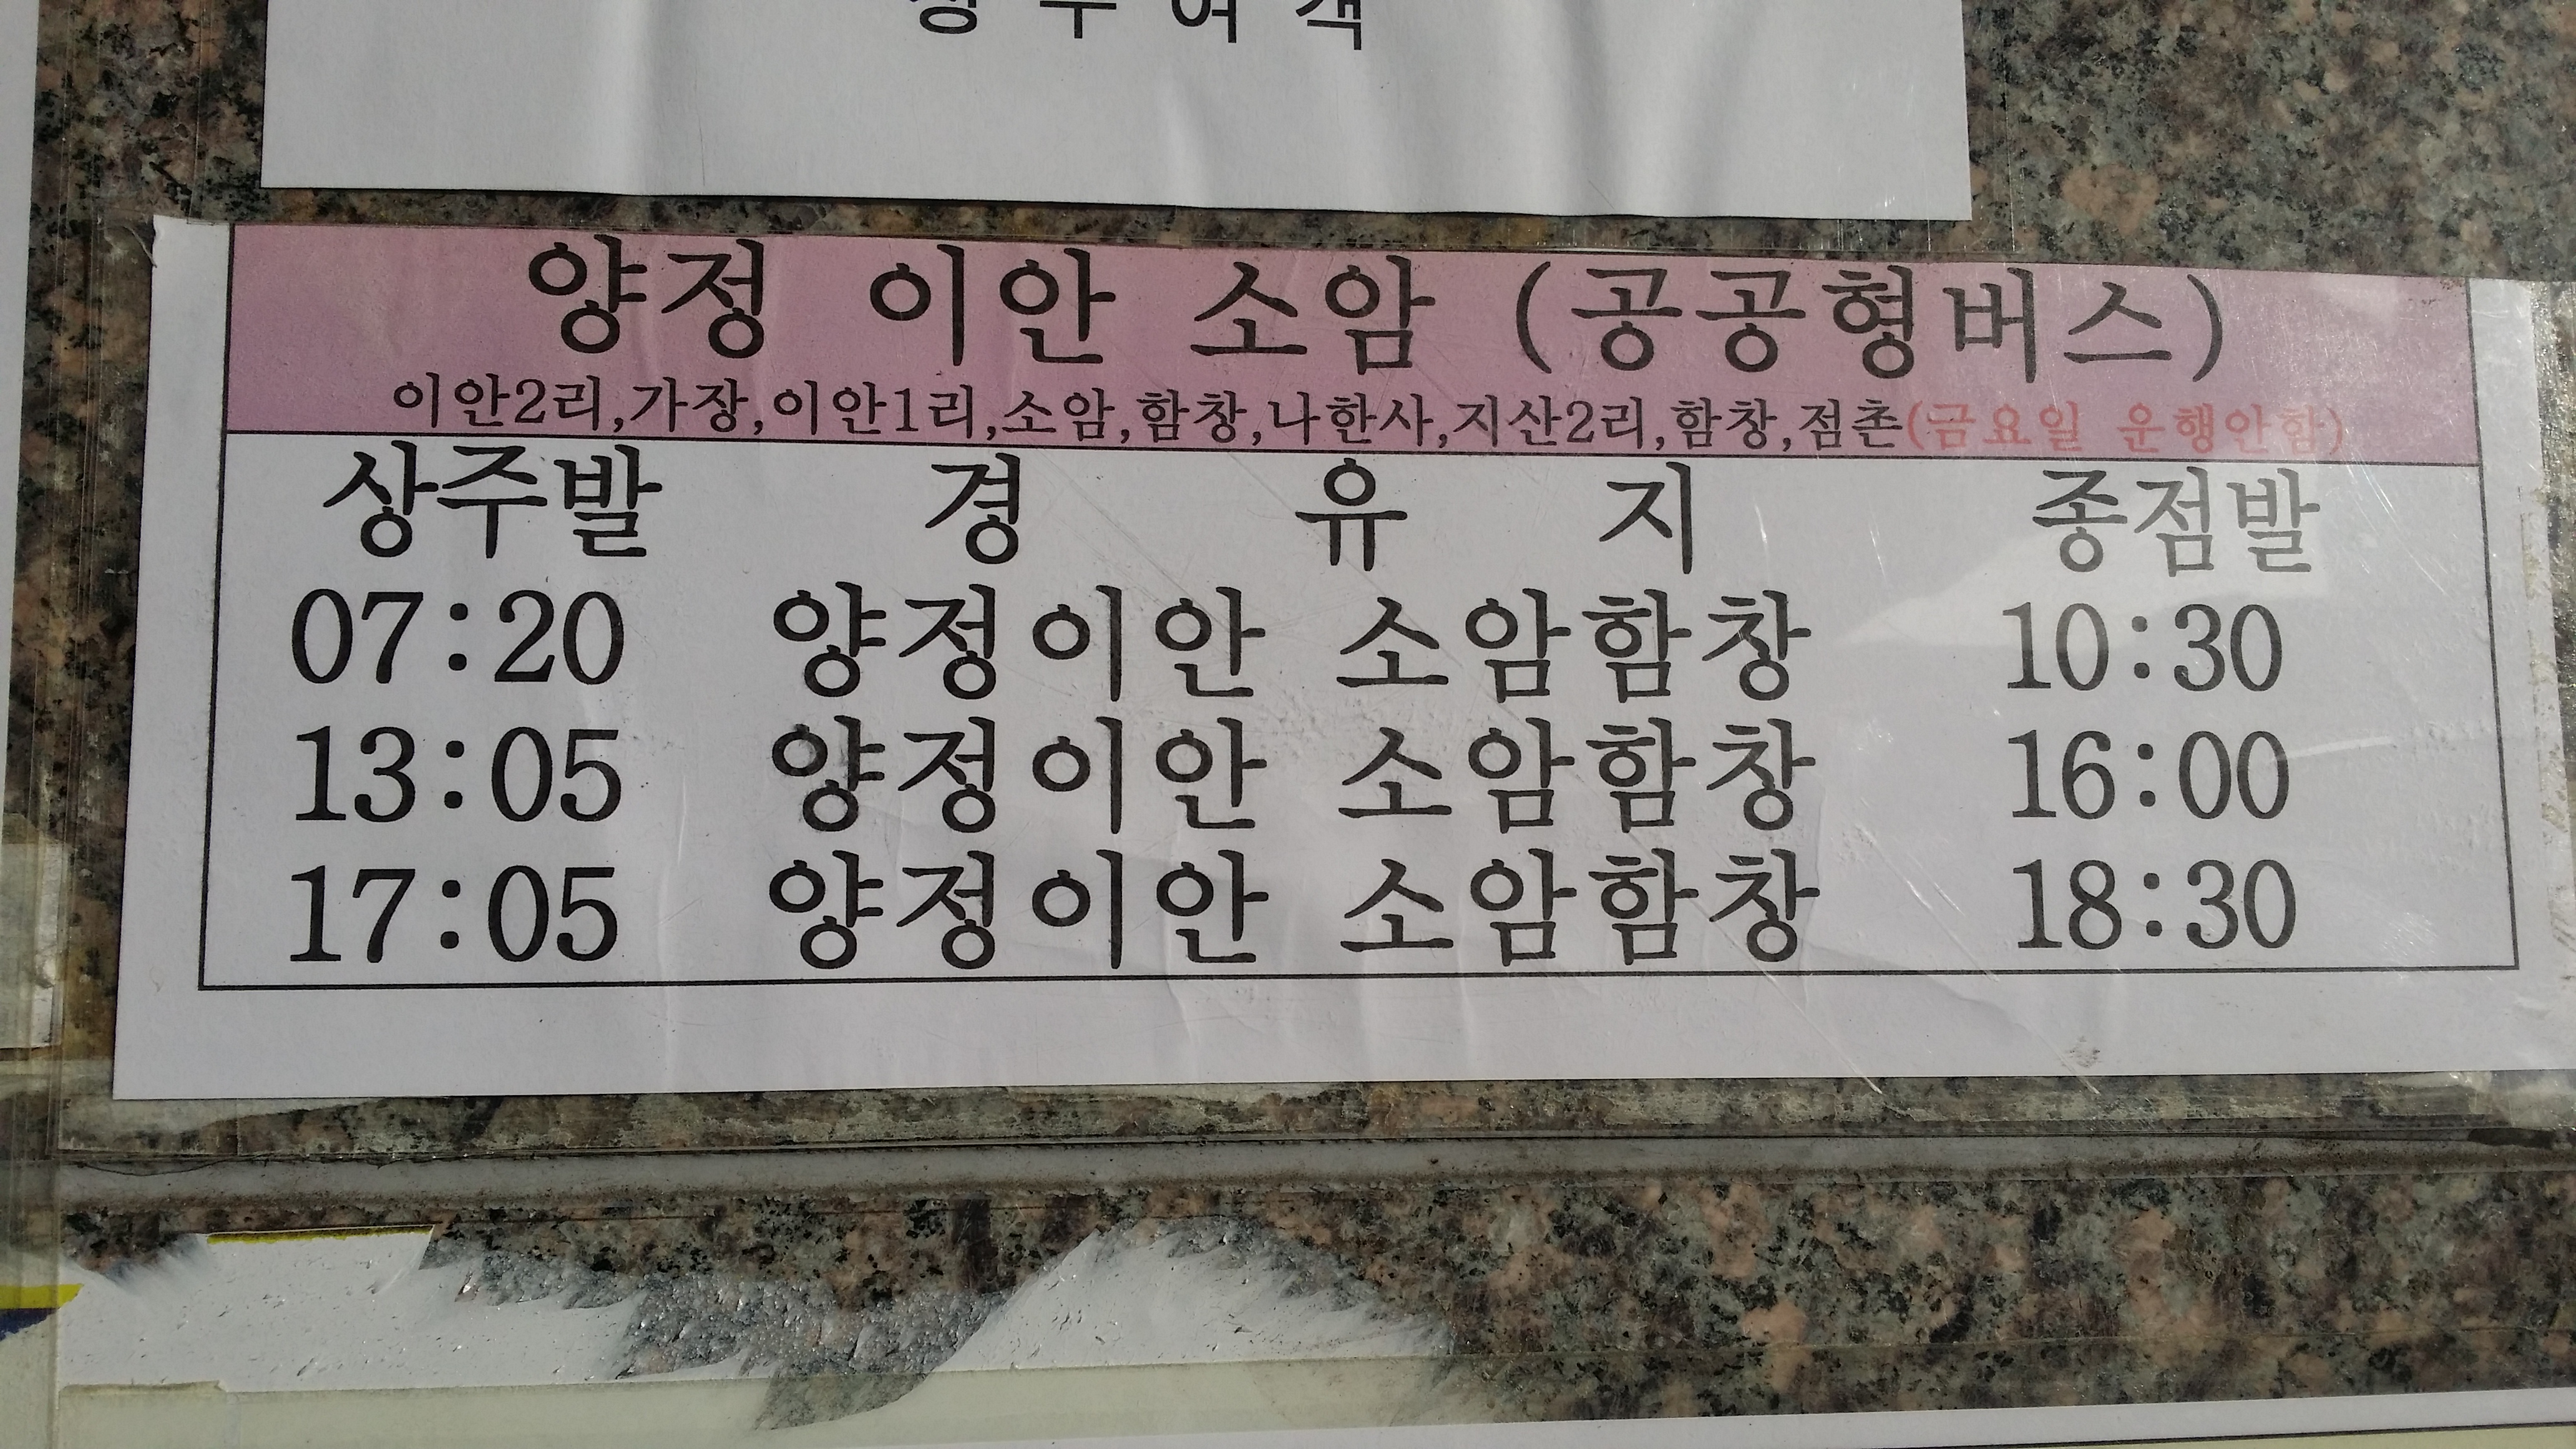 상주여객
양정 이안 소암 (공공형버스)
이안2리,가장,이안1리,소암,함창,나한사,지산2리,함창,점촌(금요일 운행안함)
상주발 경 유 지 종점발
07:20 양정이안 소암함창 10:30
13:05 양정이안 소암함창 16:00
17:05 양정이안 소암함창 18:30